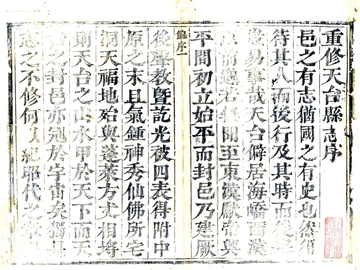 重修天台縣志序
邑之有志猶國之有史也然須
待其人而後行及其時而後
易事哉天台僻居海嶠西漢
以前開至東漢獻帝興
平間初立始平而封邑乃建厥
後聲教曁訖光被四表得附中
原之末且氣鍾神秀仙佛所宅
洞天福地始與蓬萊方丈相埒
則天台之山水甲於天下而天
之封邑亦冠於宇宙矣獨是
志之不修何以紀耶代之
序